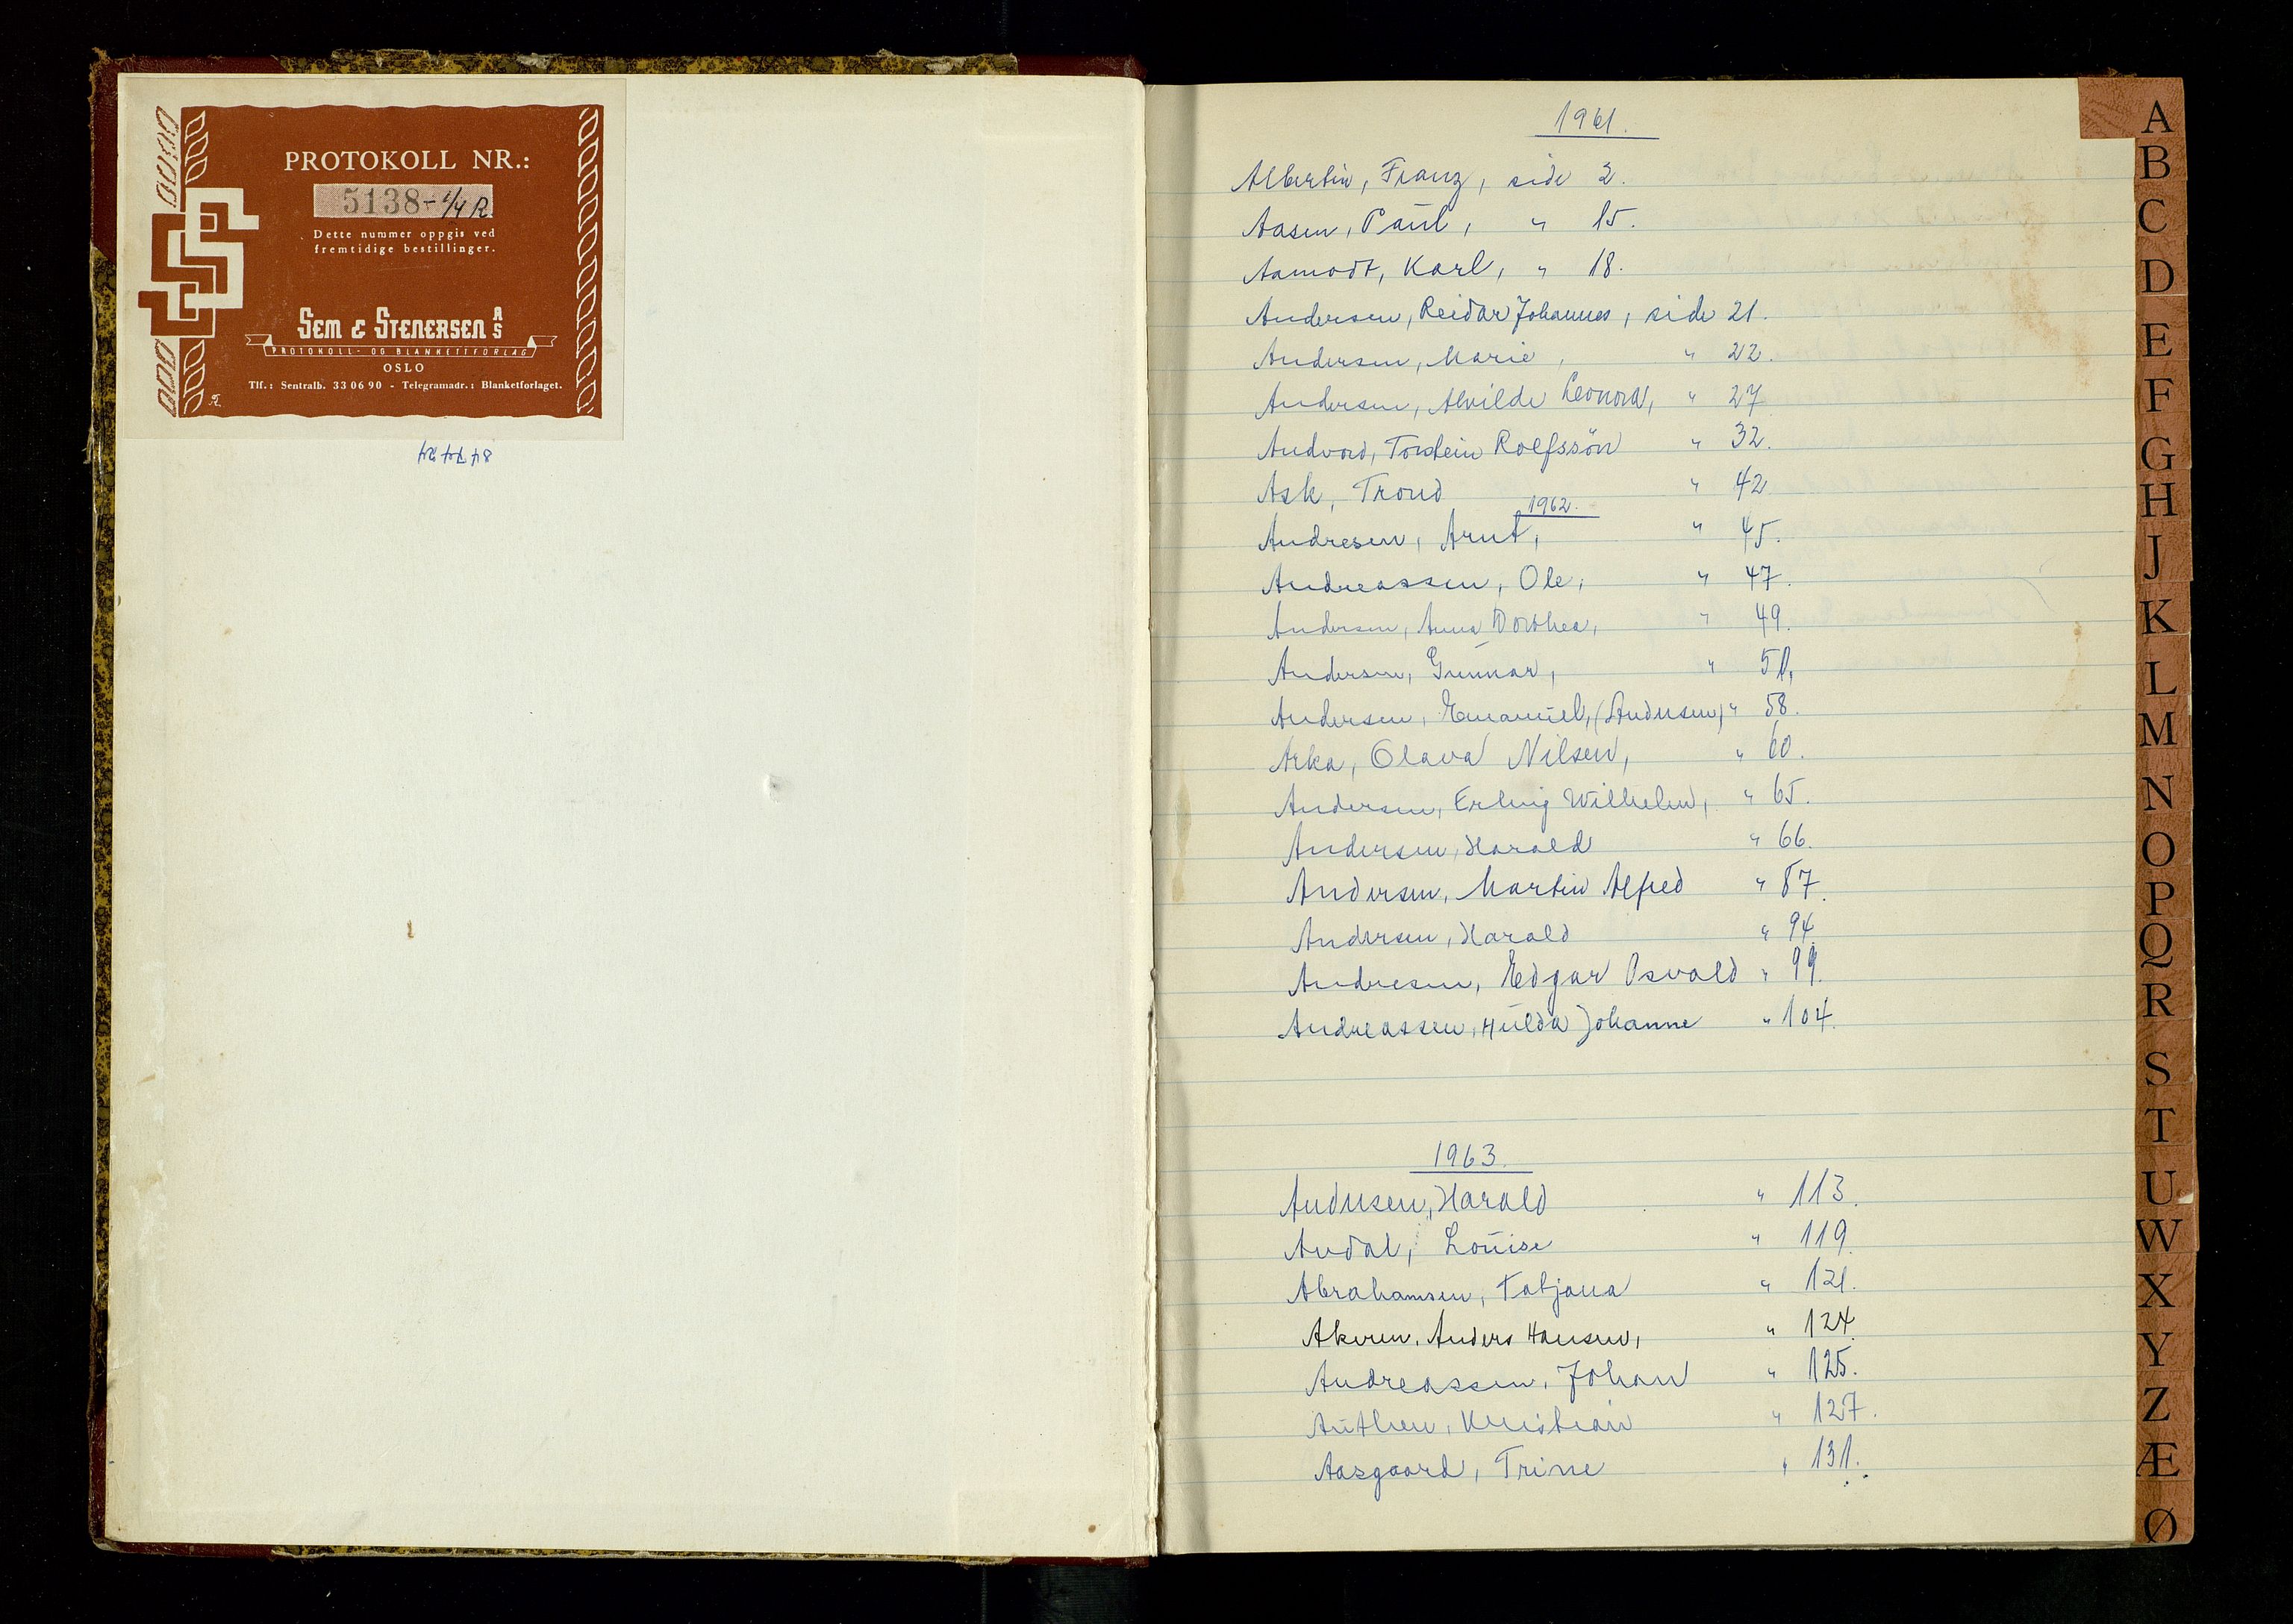 PROTOKOLL NR.:
5138-1/4 R.
Dette nummer oppgis ved
fremtidige bestillinger.
SEM & STENERSEN A/S
PROTOKOLL- OG BLANKETTFORLAG
OSLO
Tlf.: Sentralb. 33 06 90 - Telegramadr.: Blanketforlaget.
1961.
Albertin, Franz, side 2.
Aasen, Paul, " 15.
Aamodt, Karl, " 18.
Andersen, Reidar Johannes, side 21.
Andersen, Marie, " 22.
Andersen, Alvilde Leonora, " 27
Andvord, Torstein Rolfssön " 32.
Ask, Trond " 42
1962.
Andresen, Arnt, " 45.
Andreassen, Ole, " 47.
Andersen, Anna Dorthea, " 49.
Andersen, Gunnar, " 51.
Andersen, Emanuel, (Andersen) " 58.
Arka, Olava Nilsen, " 60.
Andersen, Erling Wilhelm, " 65.
Andersen, Harald " 66.
Andersen, Martin Alfred " 87.
Andersen, Harald " 94.
Andresen, Edgar Osvald " 99.
Andreassen, Hulda Johanne " 104.
1963.
Andersen, Harald " 113.
Avdal, Louise " 119.
Abrahamsen, Tatjana " 121.
Akeren, Anders Hansen, " 124.
Andreassen, Johan " 125.
Authen, Kristian " 127.
Aasgaard, Trine " 131.
A
B
C
D
E
F
G
H
J
K
L
M
N
O
P
Q
R
S
T
U
W
X
Y
Z
Æ
Ø